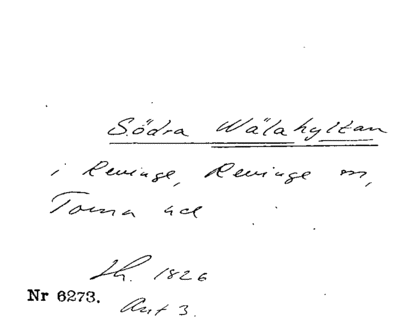 Södra Wälahyltan
i Revinge, Revinge sn,
Torna hd
Lh. 1826
Nr 6273.
Akt 3.